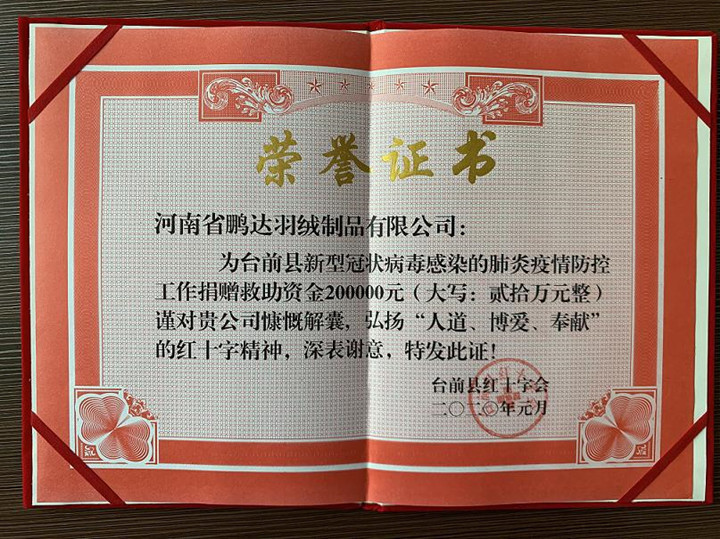 荣誉证书
河南省鹏达羽绒制品有限公司：
为台前县新型冠状病毒感染的肺炎疫情防控
工作捐赠救助资金200000元（大写：贰拾万元整）
谨对贵公司慷慨解囊，弘扬“人道、博爱、奉献”
的红十字精神，深表谢意，特发此证！
台前县红十字会
二〇二〇年元月